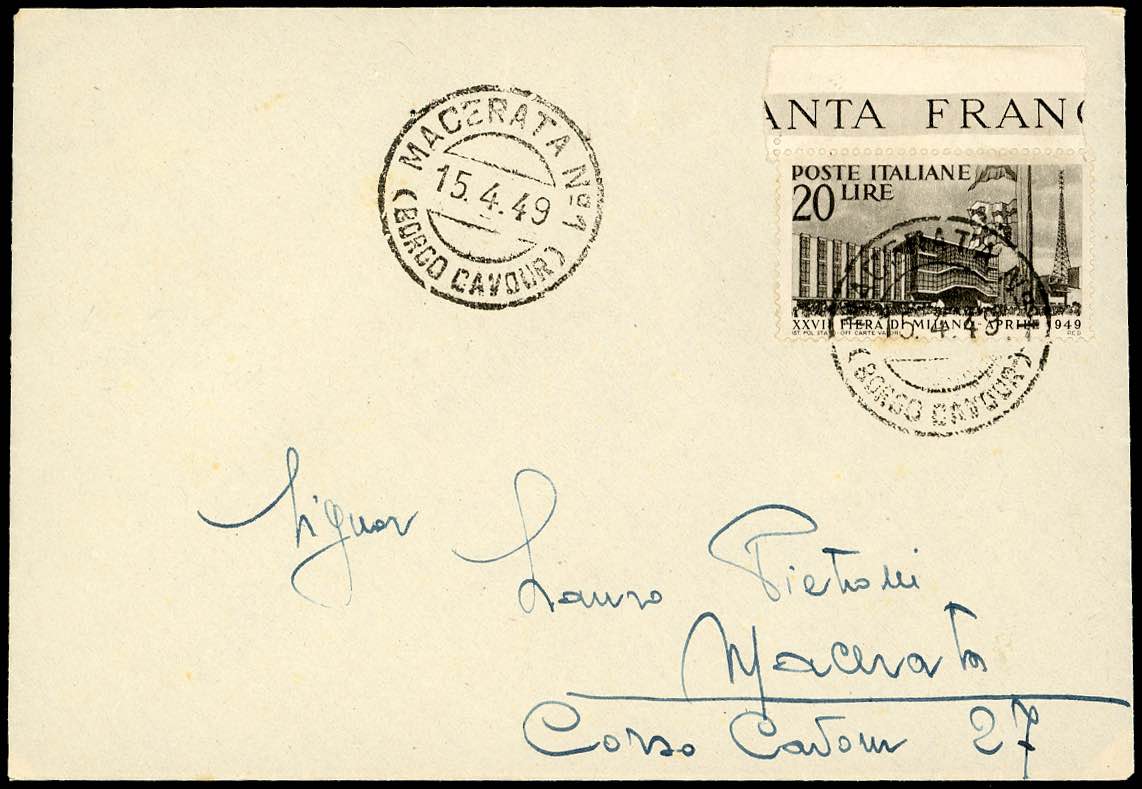 MACERATA Nº1
15.4.49
(BORGO CAVOUR)
ANTA FRANC
POSTE ITALIANE
20 LIRE
XXVII FIERA DI MILANO - APRILE 1949
IST. POL. STATO - OFF. CARTE VALORI
MACERATA Nº1
15.4.49
(BORGO CAVOUR)
Signor Lauro Pietroni
Macerata
Corso Cavour 27